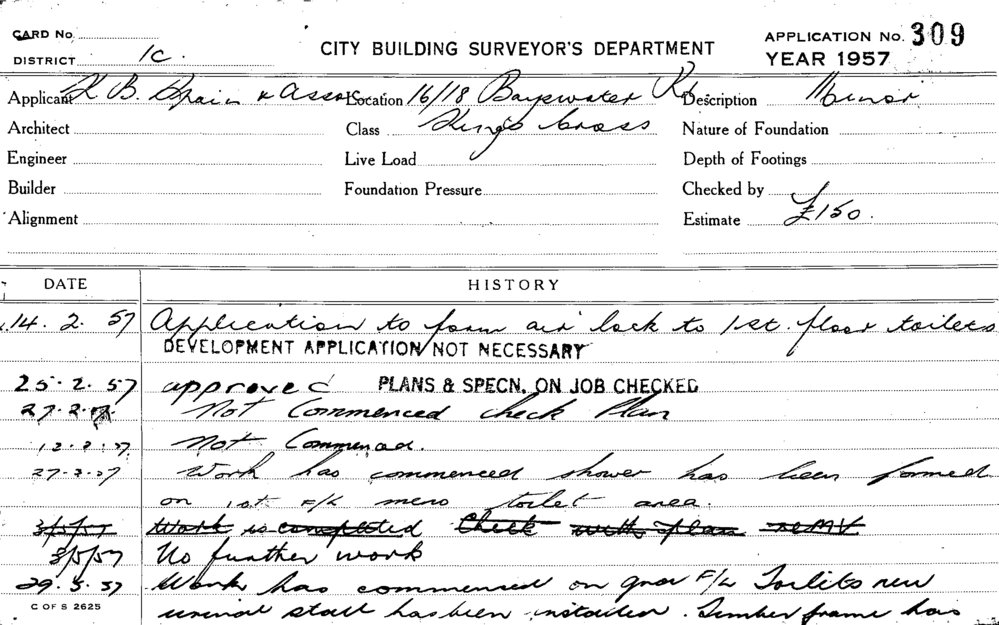 CARD No.
CITY BUILDING SURVEYOR'S DEPARTMENT
APPLICATION No. 309
DISTRICT 1C.
YEAR 1957
Applicant K B. Spain & Assoc Location 16/18 Bayswater Rd Description Minor
Architect Class Kings Cross Nature of Foundation
Engineer Live Load Depth of Footings
Builder Foundation Pressure Checked by
Alignment Estimate £150.
DATE HISTORY
14. 2. 57 Application to form air lock to 1st. floor toilets
DEVELOPMENT APPLICATION NOT NECESSARY
25. 2. 57 approved PLANS & SPECN. ON JOB CHECKED
27. 2. 57 Not Commenced check Plan
12. 3. 57 Not Commenced.
27. 3. 57 Work has commenced shower has been formed
on 1st F/L mens toilet area.
3/5/57 Work is completed Check with plan
3/5/57 No further work
29. 5. 57 Work has commenced on gnd F/L Toilits new
C OF S 2625
urinal stall has been installed. Timber frame has